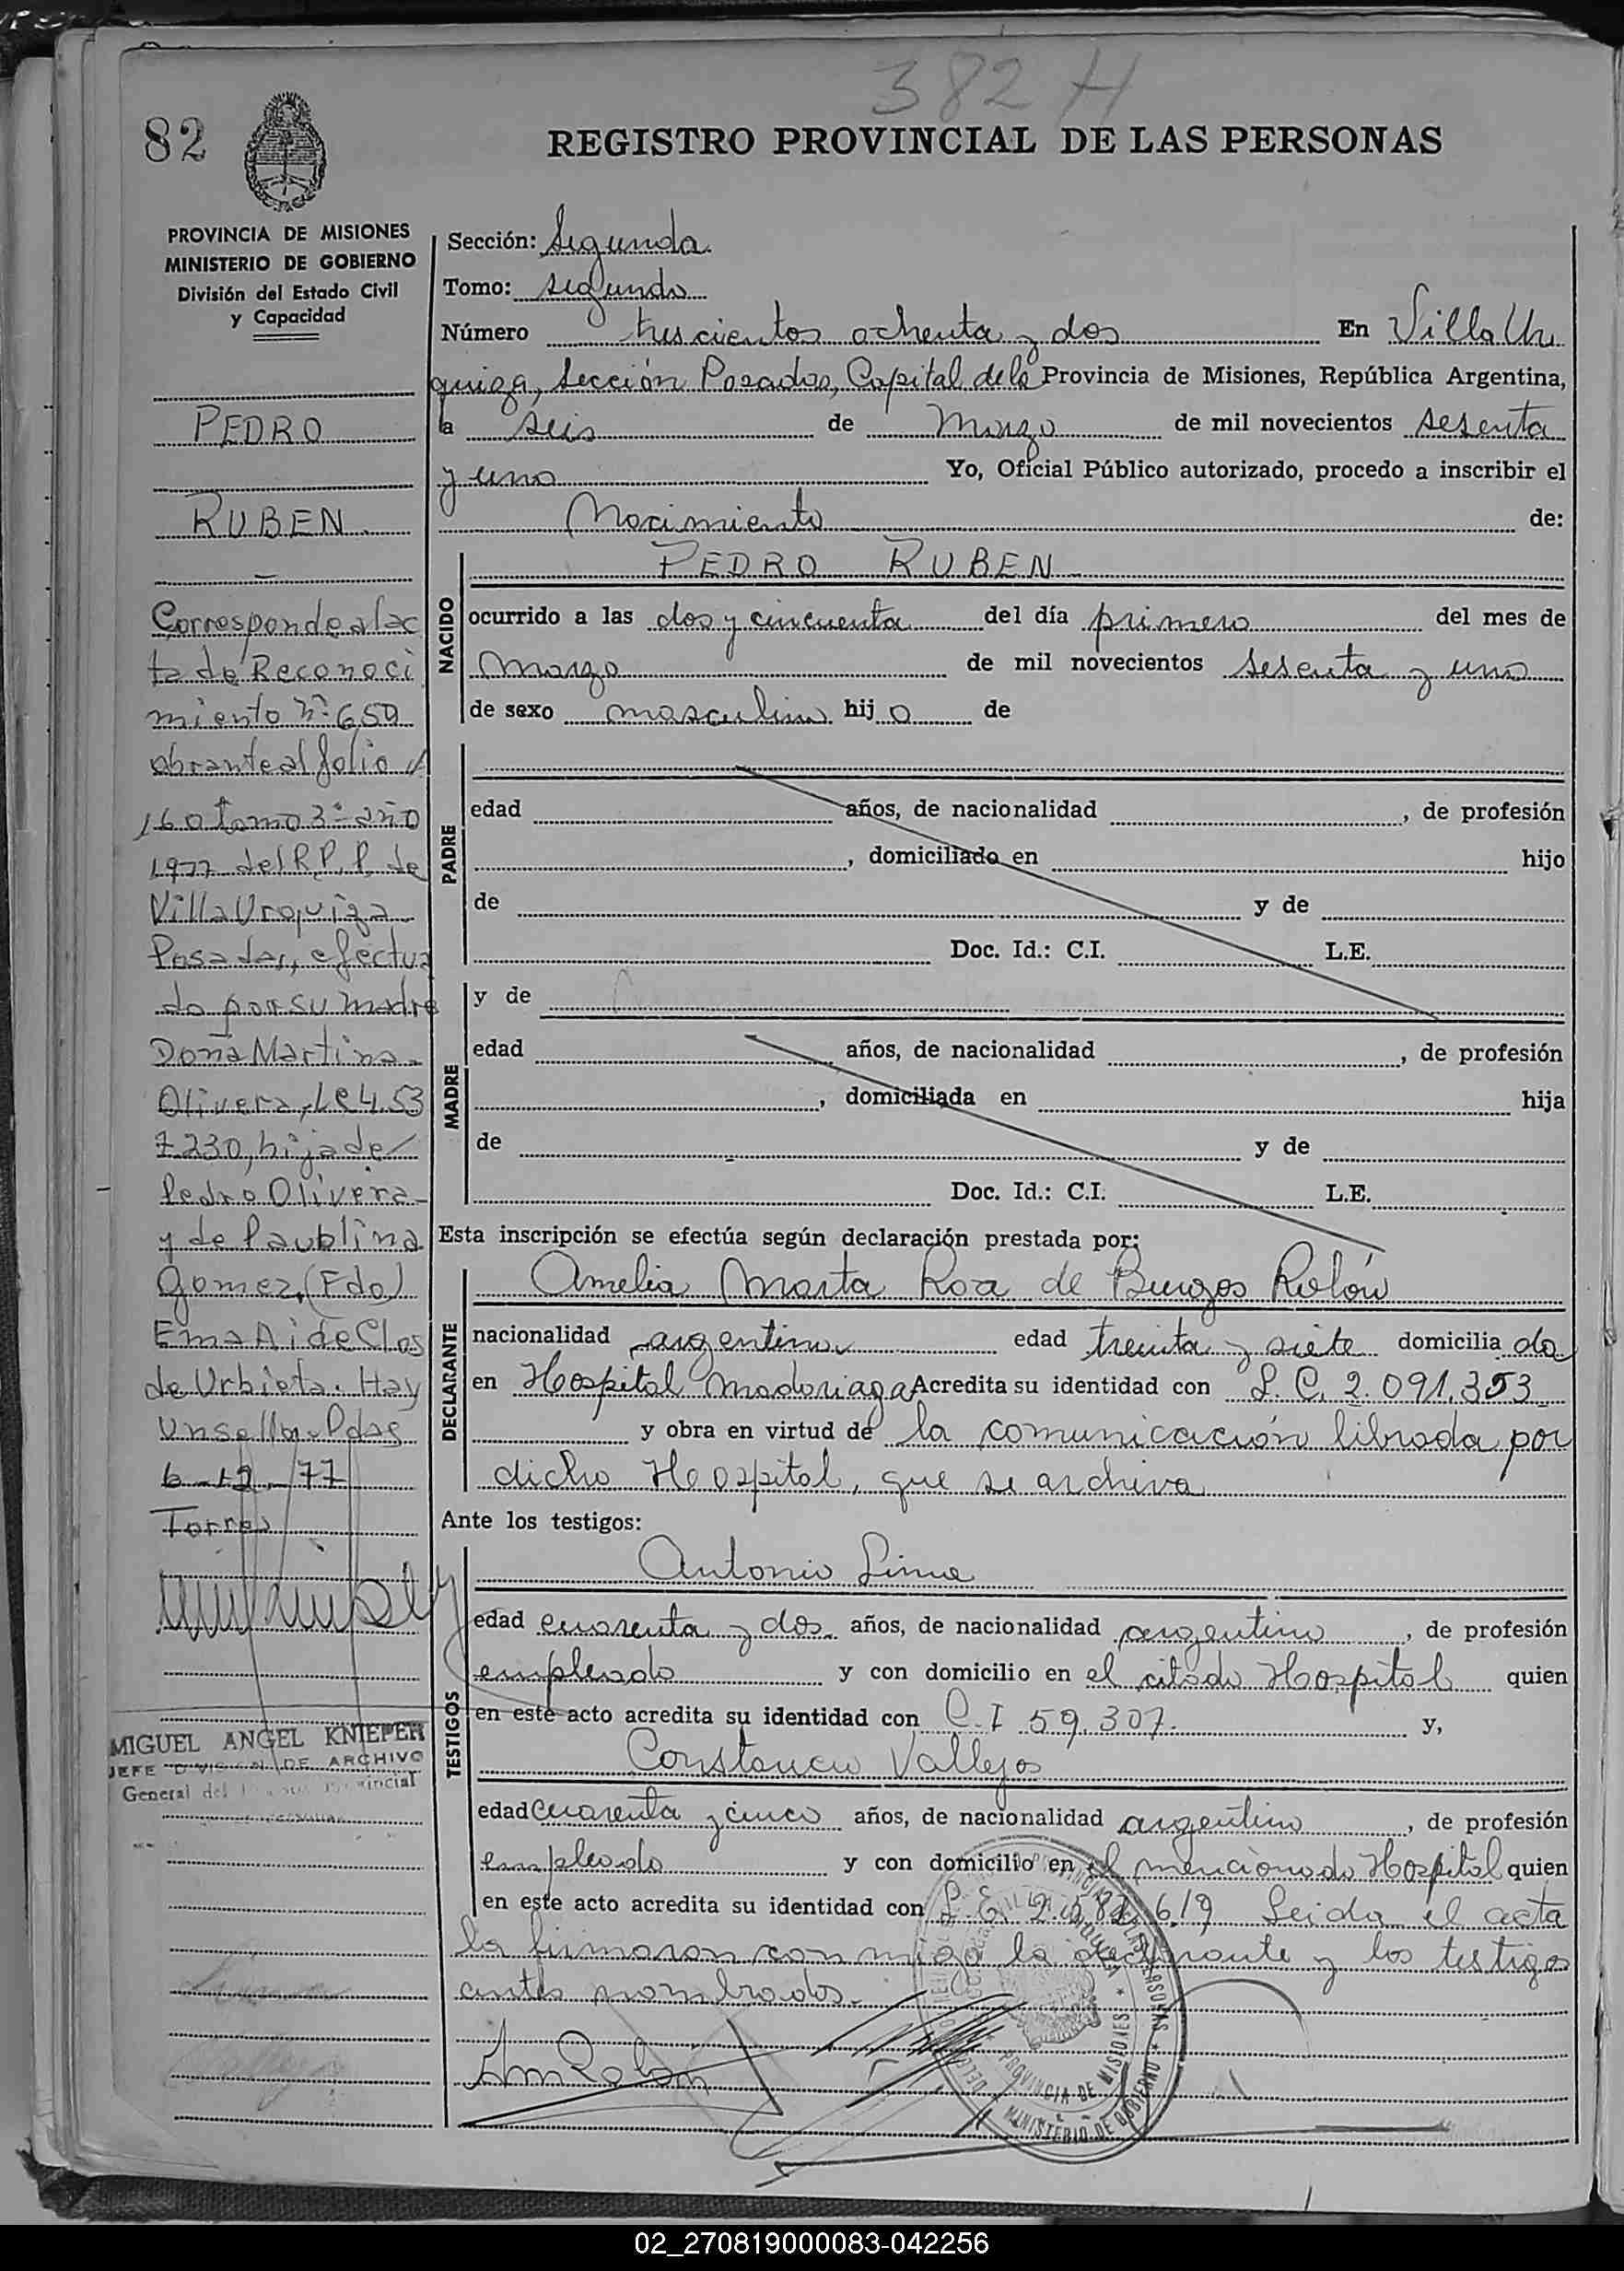 382 H
82
REGISTRO PROVINCIAL DE LAS PERSONAS
PROVINCIA DE MISIONES
MINISTERIO DE GOBIERNO
División del Estado Civil
y Capacidad
PEDRO
RUBEN
Corresponde al ac
ta de Reconoci
miento Nº 659
obrante al folio //
160 tomo 3º año
1977 del R.P.P. de
Villa Urquiza
Posadas, efectua
do por su madre
Doña Martina
Olivera, LC 4.53
7.230, hija de/
Pedro Olivera
y de Paublina
Gomez. (Fdo)
Ema Aide Clos
de Urbieta. Hay
un sello. Pdas
6-12-77
Torres
MIGUEL ANGEL KNIEPER
JEFE DIVISION DE ARCHIVO
General del
Sección: Segunda
Tomo: segundo
Número trescientos ochenta y dos En Villa Ur
quiza, Sección Posadas, Capital de la Provincia de Misiones, República Argentina,
a seis de Marzo de mil novecientos sesenta
y uno Yo, Oficial Público autorizado, procedo a inscribir el
Nacimiento de:
NACIDO
PEDRO RUBEN
ocurrido a las dos y cincuenta del día primero del mes de
marzo de mil novecientos sesenta y uno
de sexo masculino hij o de
PADRE
edad años, de nacionalidad , de profesión
, domiciliado en hijo
de y de
Doc. Id.: C.I. L.E.
MADRE
y de
edad años, de nacionalidad , de profesión
, domiciliada en hija
de y de
Doc. Id.: C.I. L.E.
Esta inscripción se efectúa según declaración prestada por:
DECLARANTE
Amelia Marta Roa de Burgos Rolón
nacionalidad argentina edad treinta y siete domicilia da
en Hospital Madariaga Acredita su identidad con L.C. 2.091.353
y obra en virtud de la comunicación librada por
dicho Hospital, que se archiva
Ante los testigos:
TESTIGOS
Antonio Lima
edad cuarenta y dos años, de nacionalidad argentino , de profesión
empleado y con domicilio en el citado Hospital quien
en este acto acredita su identidad con C.I 59.307. y,
Constancio Vallejos
edad cuarenta y cinco años, de nacionalidad argentino , de profesión
empleado y con domicilio en el mencionado Hospital quien
en este acto acredita su identidad con L.E. 619 Leida el acta
la firmaron conmigo la declarante y los testigos
antes nombrados.
PROVINCIA DE MISIONES
MINISTERIO DE GOBIERNO
02_270819000083-042256